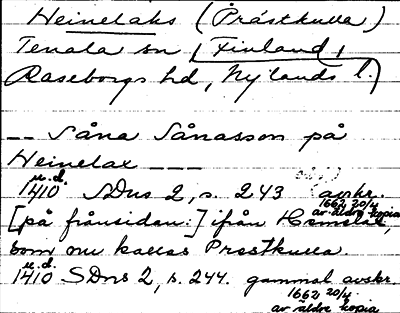 Heinelaks (Prästkulla)
Tenala sn, Finland,
Raseborgs hd, Nylands l.)
-- Såna Sånasson på
Heinelax ---
u.d.
1410 SDns 2, s. 243 avskr.
1662 20/4
av äldre kopia
[på frånsidan:] ifrån
som nu kallas Prestkulla.
u.d.
1410 SDns 2, s. 244. gammal avskr.
1662 20/4
av äldre kopia